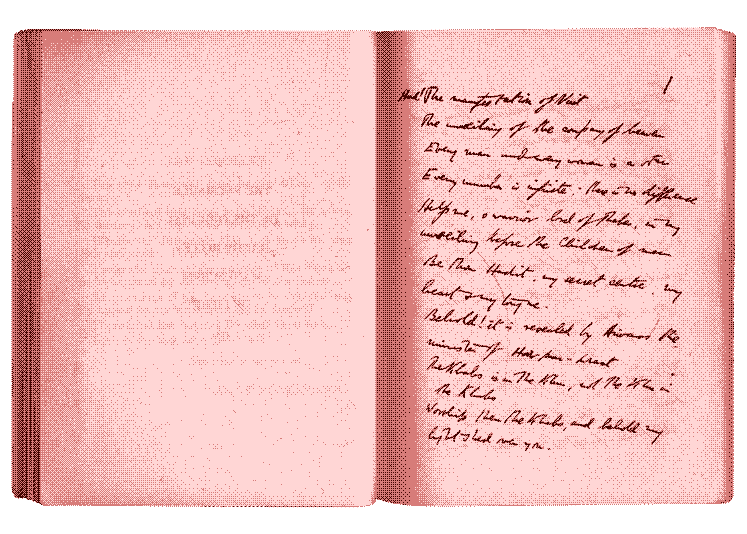 1
Had! The manifestation of Nuit
The unveiling of the company of heaven
Every man and every woman is a star
Every number is infinite - there is no difference
Help me, o warrior lord of Thebes, in my
unveiling before the Children of men
Be thou Hadit, my secret centre, my
heart & my tongue.
Behold! it is revealed by Aiwass the
minister of Hoor-paar-kraat
The Khabs is in the Khu, not the Khu in
the Khabs
Worship then the Khabs, and behold my
light shed over you.